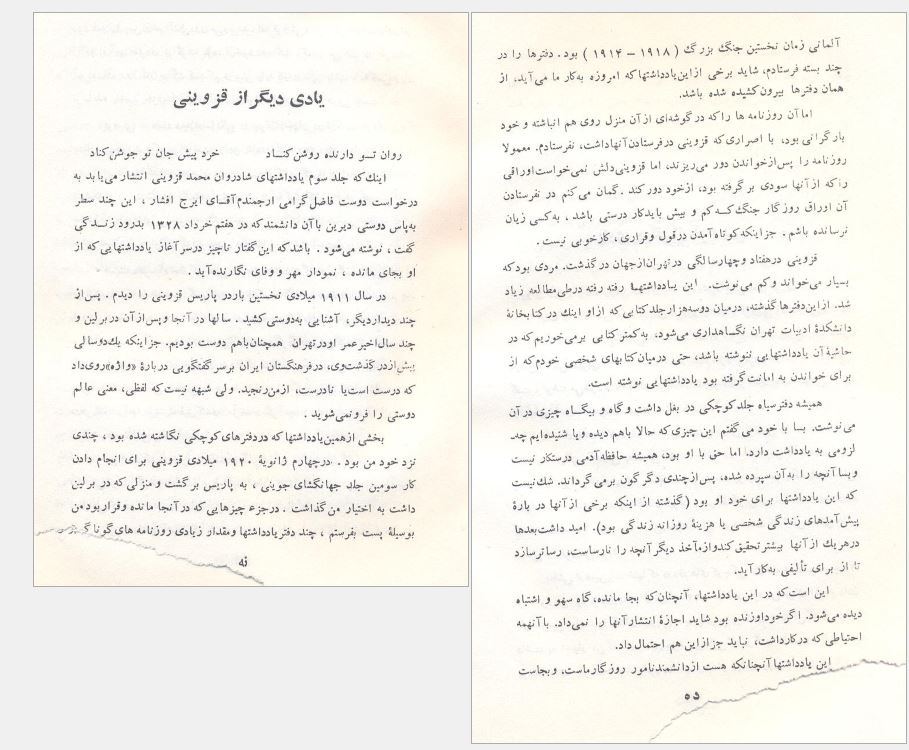 یادی دیگر از قزوینی
روان تـو دارنده روشن‌کنـاد خرد پیش جان تو جوشن‌کناد
اینك‌که جلد سوم یادداشتهای شادروان محمد قزوینی انتشار می‌یابد به
درخواست دوست فاضل گرامی ارجمندم آقـای ایرج افشار ، این چند سطر
به‌پاس دوستی دیرین با آن دانشمندکه در هفتم خرداد ۱۳۲۸ بدرود زنـدگی
گفت ، نوشته می‌شود . باشدکه این گفتار ناچیز درسرآغاز یادداشتهایی که از
او بجای مانده ، نمودار مهر و وفای نگارنده آید .
در سال ۱۹۱۱ میلادی نخستین باردر پاریس قزوینی را دیدم . پس از
چند دیداردیگر، آشنایی به‌دوستی کشید . سالها در آنجا وپس‌از آن در برلین و
چند سال اخیرعمر اودرتهران همچنان باهم دوست بودیم. جز اینکه یك‌دوسالی
پیش‌ازدر گذشت‌وی، درفرهنگستان ایران برسر گفتگویی در بارهٔ «واژه»روی‌داد
که درست است‌یا نادرست، ازمن‌رنجید. ولی شبهه نیست‌که لفظی، معنی عالم
دوستی را فرونمی‌شوید .
بخشی ازهمین‌یادداشتها که دردفترهای کوچکی نگاشته شده بود ، چندی
نزد خود من بود . درچهارم ژانویهٔ ۱۹۲۰ میلادی قزوینی برای انجام دادن
کار سومین جلد جهانگشای جوینی ، به پاریس برگشت و منزلی که در برلین
داشت به اختیار من گذاشت . درجزء چیزهایی که در آنجا مانده وقرار بود من
بوسیلهٔ پست بفرستم ، چند دفتر یادداشتها ومقدار زیادی روزنامه های گوناگون
نه
آلمانی زمان نخستین جنگ بزرگ ( ۱۹۱۸ – ۱۹۱۴ ) بود . دفترها را در
چند بسته فرستادم، شاید برخی ازاین‌یادداشتهاکه امروزه به‌کار ما می‌آید، از
همان دفترها بیرون‌کشیده شده باشد.
اما آن روزنامه ها را که در گوشه‌ای از آن منزل روی هم انباشته و خود
بار گرانی بود، با اصراری‌که قزوینی درفرستادن آنهاداشت، نفرستادم. معمولا
روزنامه را پس ازخواندن دور می‌ریزند، اما قزوینی‌دلش نمی‌خواست‌اوراقی
را که از آنها سودی بر گرفته بود، ازخود دور کند . گمان می کنم در نفرستادن
آن اوراق روزگار جنگ که کم و بیش بایدکار درستی باشد ، به‌کسی زیان
نرسانده باشم . جز اینکه کوتاه آمدن درقول وقراری، کارخوبی نیست .
قزوینی درهفتاد وچهارسالگی در تهران‌ازجهان در گذشت. مردی بودکه
بسیار می‌خواند وکم می‌نوشت. این یـادداشتهـا رفته رفته درطی‌مطالعه زیاد
شد. ازاین‌دفترها گذشته، درمیان دوسه‌هزارجلدکتابی که ازاو اینك در کتابخانهٔ
دانشکدهٔ ادبیات تهران نگـاهداری می‌شود، به‌کمتر کتابی برمی‌خوریم که در
حاشیهٔ آن یادداشتهایی ننوشته باشد، حتی درمیان کتابهای شخصی خودم که از
برای خواندن به امانت گرفته بود یادداشتهایی نوشته است.
همیشه دفترسیاه جلد کوچکی در بغل داشت و گاه و بیگـاه چیزی در آن
می‌نوشت. بسا با خود می گفتم این چیزی که حالا باهم دیده ویا شنیده‌ایم چه
لزومی به یادداشت دارد. اما حق با او بود، همیشه حافظه‌آدمی درستکار نیست
وبسا آنچه را به‌آن سپرده شده، پس‌ازچندی دگرگون برمی‌گرداند. شك‌نیست
که این یادداشتها برای خود او بود (گذشته از اینکه برخی از آنها در بارهٔ
پیش آمدهای زندگی شخصی یا هزینهٔ روزانه زندگی بود). امید داشت‌بعدها
درهریك از آنها بیشتر تحقیق کندوازمآخذ دیگر آنچه را نارساست، رساترسازد
تا از برای تألیفی به‌کار آید.
این است‌که در این یادداشتها، آنچنان‌که بجا مانده، گاه سهو و اشتباه
دیده می‌شود. اگر خوداوزنده بود شاید اجازهٔ انتشار آنها را نمی‌داد. با آنهمه
احتیاطی که در کارداشت، نباید جز ازاین هم احتمال داد.
این یادداشتها آنچنانکه هست ازدانشمندنامور روزگارماست، وبجاست
ده